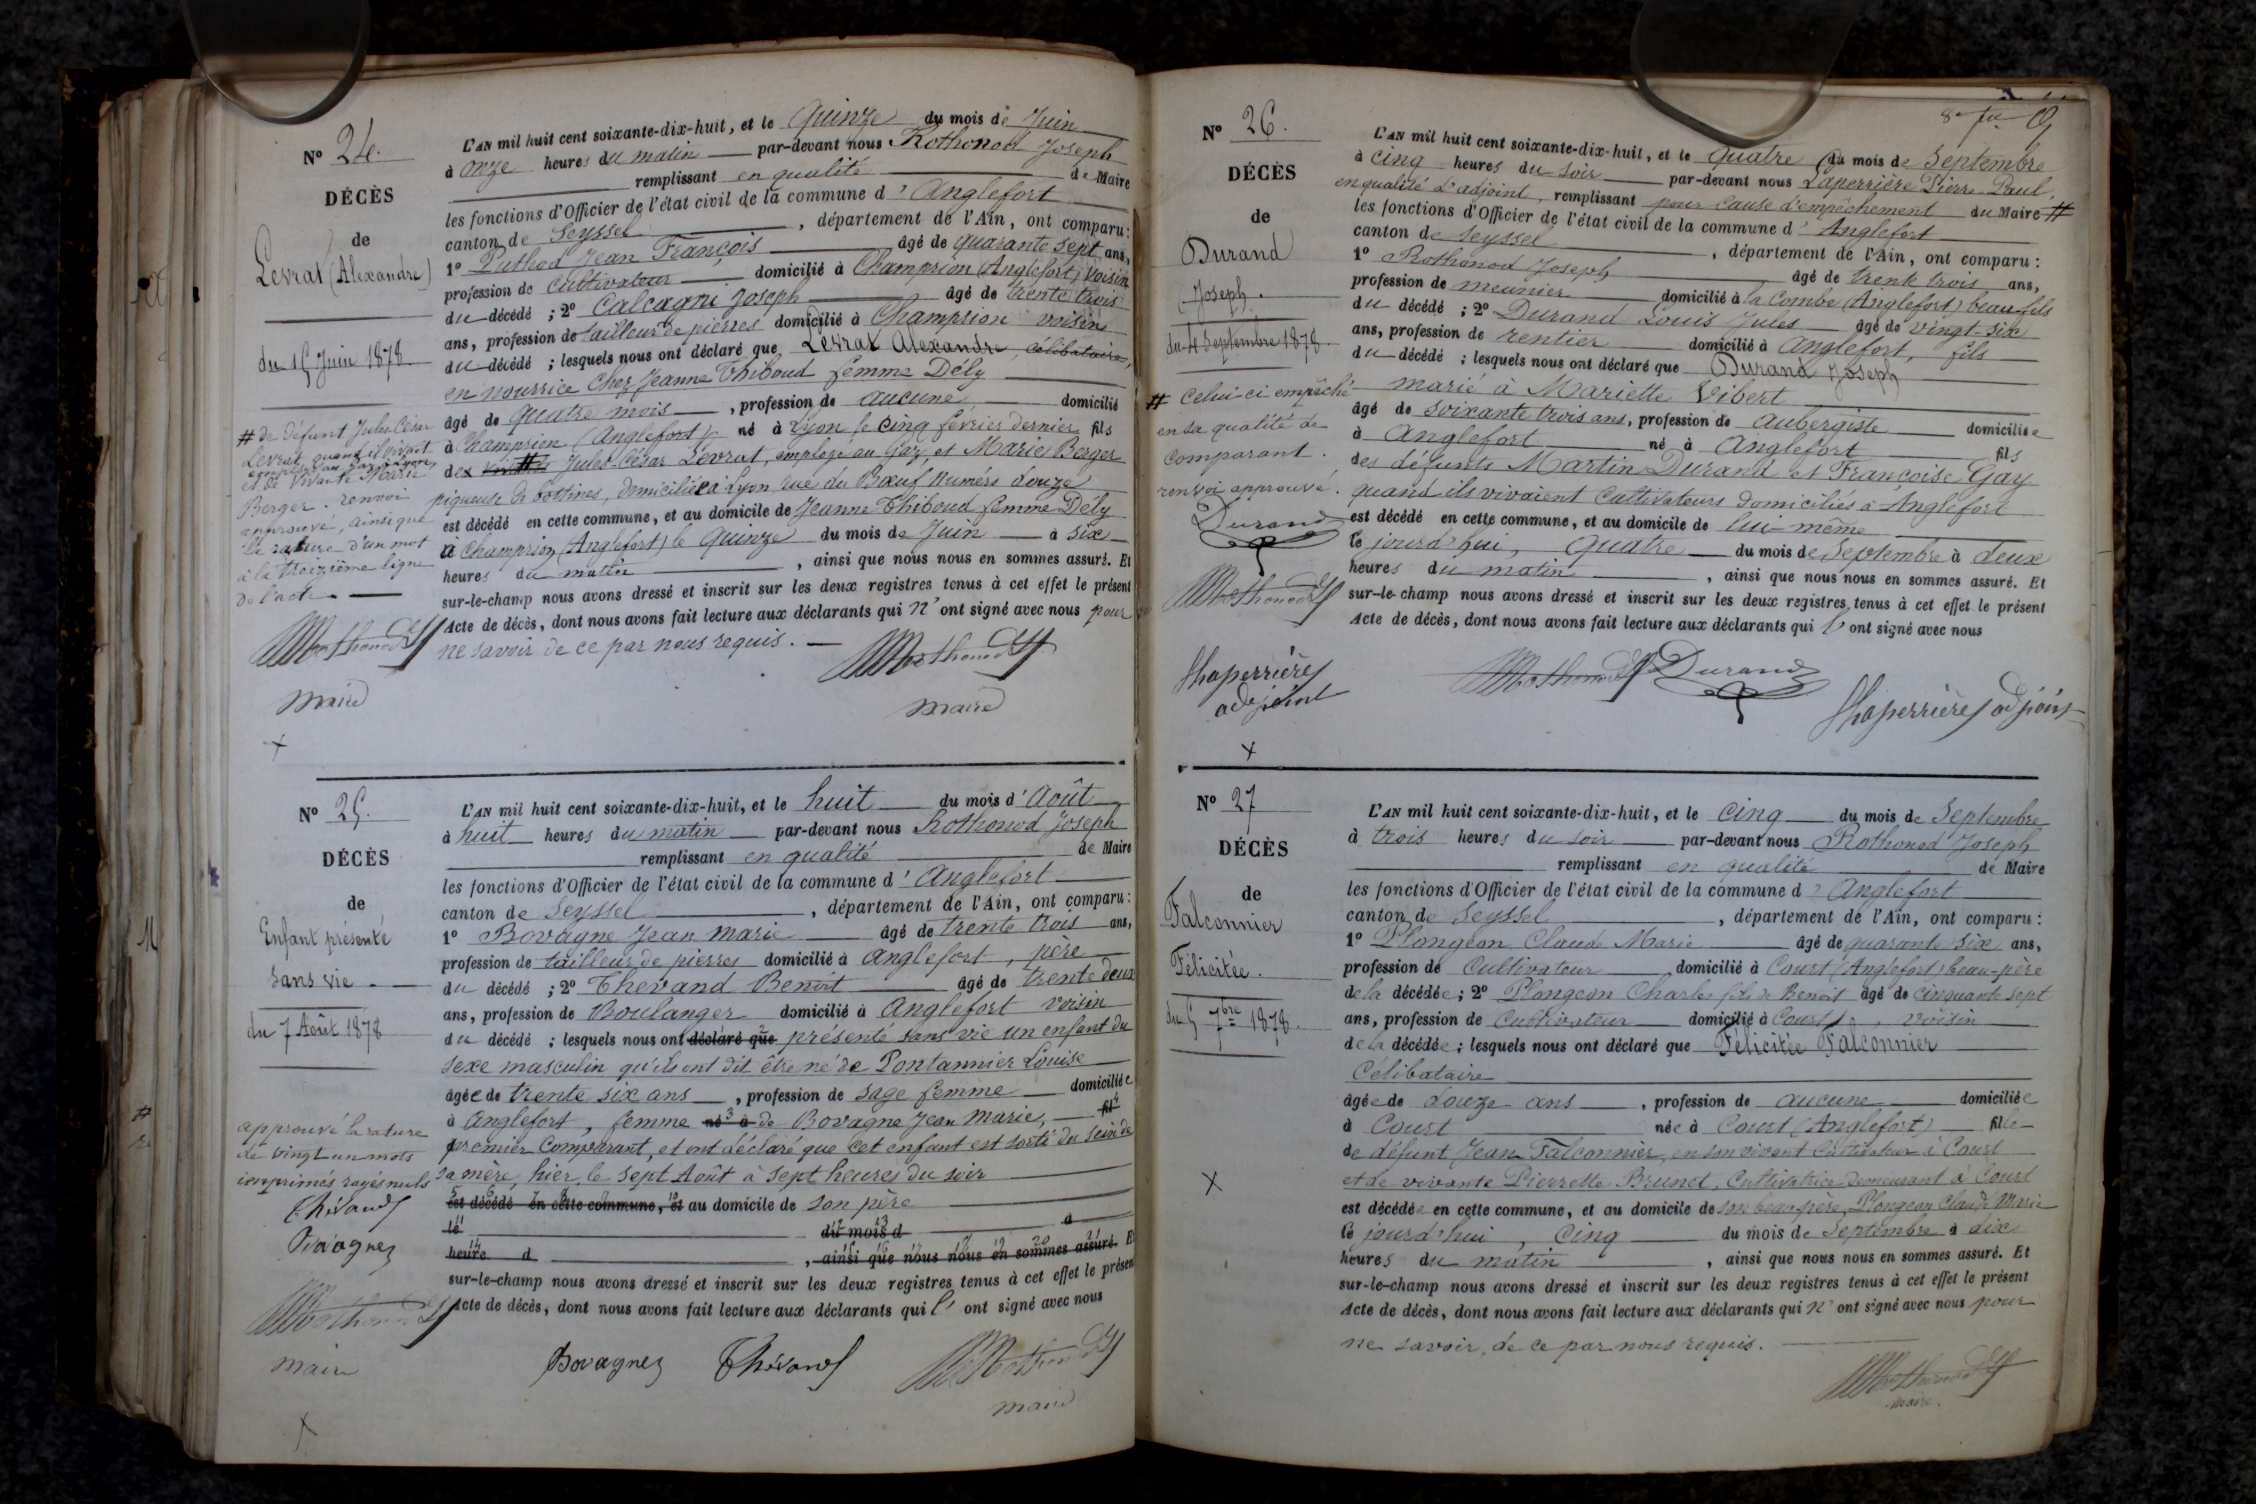 N° 24.
DÉCÈS
de
Levrat (Alexandre)
du 15 Juin 1878
# de défunt Jules César
Levrat, quand il vivait
employé au Gaz à Lyon,
et de vivante Marie
Berger. renvoi
approuvé, ainsi que
la rature d'un mot
à la treizième ligne
de l'acte.
Rothonod
maire
L'AN mil huit cent soixante-dix-huit, et le Quinze du mois de Juin
à onze heures du matin par-devant nous Rothonod Joseph
remplissant en qualité de Maire
les fonctions d'Officier de l'état civil de la commune d'Anglefort
canton de Seyssel, département de l'Ain, ont comparu :
1° Puthod Jean François âgé de quarante sept ans,
profession de cultivateur domicilié à Champrion (Anglefort) voisin
du décédé ; 2° Calcagni Joseph âgé de trente trois
ans, profession de tailleur de pierres domicilié à Champrion voisin
du décédé ; lesquels nous ont déclaré que Levrat Alexandre, célibataire,
en nourrice chez Jeanne Thiboud femme Dély
âgé de quatre mois, profession de aucune domicilié
à Champrion (Anglefort) né à Lyon le cinq février dernier fils
de # Jules César Levrat, employé au Gaz, et Marie Berger
piqueuse de bottines, domiciliée à Lyon rue du Bœuf numéro douze
est décédé en cette commune, et au domicile de Jeanne Thiboud femme Dély
à Champrion (Anglefort) le Quinze du mois de Juin à six
heures du matin, ainsi que nous nous en sommes assuré. Et
sur-le-champ nous avons dressé et inscrit sur les deux registres tenus à cet effet le présent
Acte de décès, dont nous avons fait lecture aux déclarants qui n'ont signé avec nous pour
ne savoir de ce par nous requis.
Rothonod
maire
N° 25.
DÉCÈS
de
Enfant présenté
sans vie.
du 7 Août 1878
approuvé la rature
de vingt un mots
imprimés rayés nuls
Thévand
Bovagnez
Rothonod
maire
L'AN mil huit cent soixante-dix-huit, et le huit du mois d'Août
à huit heures du matin par-devant nous Rothonod Joseph
remplissant en qualité de Maire
les fonctions d'Officier de l'état civil de la commune d'Anglefort
canton de Seyssel, département de l'Ain, ont comparu :
1° Bovagne Jean Marie âgé de trente trois ans,
profession de tailleur de pierres domicilié à Anglefort, père
du décédé ; 2° Thevand Benoit âgé de trente deux
ans, profession de Boulanger domicilié à Anglefort voisin
du décédé ; lesquels nous ont déclaré que présenté sans vie un enfant du
sexe masculin qu'ils ont dit être né de Pontannier Louise
âgée de trente six ans, profession de sage femme domiciliée
à Anglefort, femme né à de Bovagne Jean Marie, fil
premier comparant, et ont déclaré que cet enfant est sorti du sein de
sa mère, hier, le sept Août à sept heures du soir
est décédé en cette commune, et au domicile de son père
le du mois d à
heure d, ainsi que nous nous en sommes assuré. Et
sur-le-champ nous avons dressé et inscrit sur les deux registres tenus à cet effet le présent
Acte de décès, dont nous avons fait lecture aux déclarants qui l'ont signé avec nous
Bovagnez Thévand Rothonod
maire
N° 26.
DÉCÈS
de
Durand
Joseph.
du 4 Septembre 1878.
# Celui-ci empêché
en sa qualité de
comparant.
renvoi approuvé.
Durand
Rothonod
Laperrière
adjoint
L'AN mil huit cent soixante-dix-huit, et le Quatre du mois de Septembre
à cinq heures du soir par-devant nous Laperrière Pierre Paul,
en qualité d'adjoint, remplissant pour cause d'empêchement du Maire #
les fonctions d'Officier de l'état civil de la commune d'Anglefort
canton de Seyssel, département de l'Ain, ont comparu :
1° Rothonod Joseph âgé de trente trois ans,
profession de meunier domicilié à la Combe (Anglefort) beau-fils
du décédé ; 2° Durand Louis Jules âgé de vingt-six
ans, profession de rentier domicilié à Anglefort, fils
du décédé ; lesquels nous ont déclaré que Durand Joseph
marié à Mariette Vibert
âgé de soixante trois ans, profession de aubergiste domicilié
à Anglefort né à Anglefort fils
des défunts Martin Durand et Françoise Gay
quand ils vivaient cultivateurs domiciliés à Anglefort
est décédé en cette commune, et au domicile de lui-même
le jourd'hui, Quatre du mois de Septembre à deux
heures du matin, ainsi que nous nous en sommes assuré. Et
sur-le-champ nous avons dressé et inscrit sur les deux registres tenus à cet effet le présent
Acte de décès, dont nous avons fait lecture aux déclarants qui l'ont signé avec nous
Rothonod Durand
Laperrière adjoint
N° 27
DÉCÈS
de
Falconnier
Félicitée.
du 5 7bre 1878.
L'AN mil huit cent soixante-dix-huit, et le cinq du mois de Septembre
à trois heures du soir par-devant nous Rothonod Joseph
remplissant en qualité de Maire
les fonctions d'Officier de l'état civil de la commune d'Anglefort
canton de Seyssel, département de l'Ain, ont comparu :
1° Plongeon Claude Marie âgé de quarante six ans,
profession de cultivateur domicilié à Court (Anglefort) beau-père
de la décédée ; 2° Plongeon Charles fils de Benoit âgé de cinquante sept
ans, profession de cultivateur domicilié à Court, voisin
de la décédée ; lesquels nous ont déclaré que Félicitée Falconnier
Célibataire
âgée de douze ans, profession de aucune domiciliée
à Court née à Court (Anglefort) fille
de défunt Jean Falconnier, en son vivant cultivateur à Court
et de vivante Pierrette Brunet, cultivatrice demeurant à Court
est décédée en cette commune, et au domicile de son beau-père, Plongeon Claude Marie
le jourd'hui, Cinq du mois de Septembre à dix
heures du matin, ainsi que nous nous en sommes assuré. Et
sur-le-champ nous avons dressé et inscrit sur les deux registres tenus à cet effet le présent
Acte de décès, dont nous avons fait lecture aux déclarants qui n'ont signé avec nous pour
ne savoir, de ce par nous requis.
Rothonod
maire.